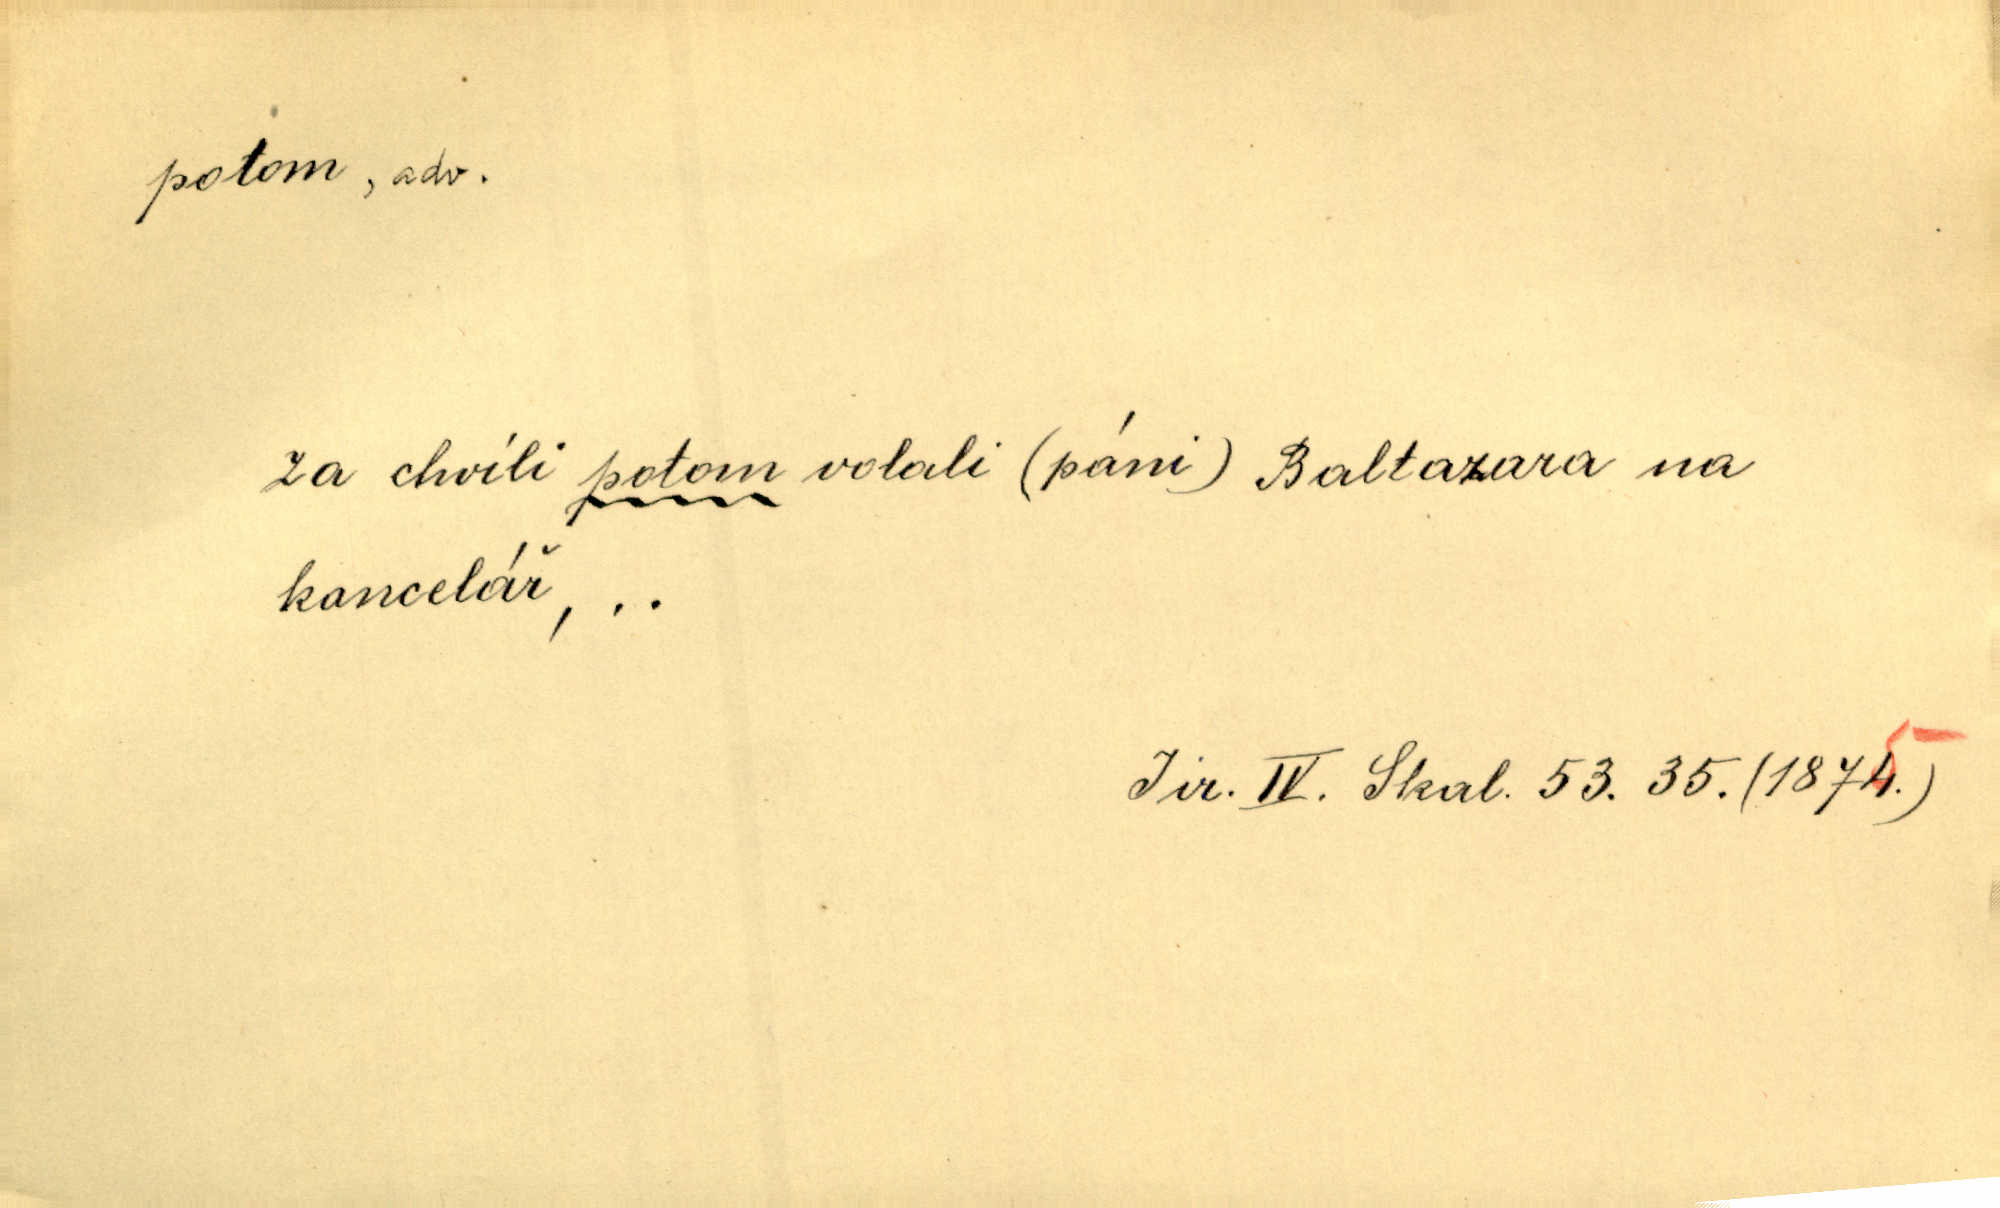 potom, adv.
za chvíli potom volali (páni) Baltazara na
kancelář, ..
Jir. IV. Skal. 53. 35. (1875.)